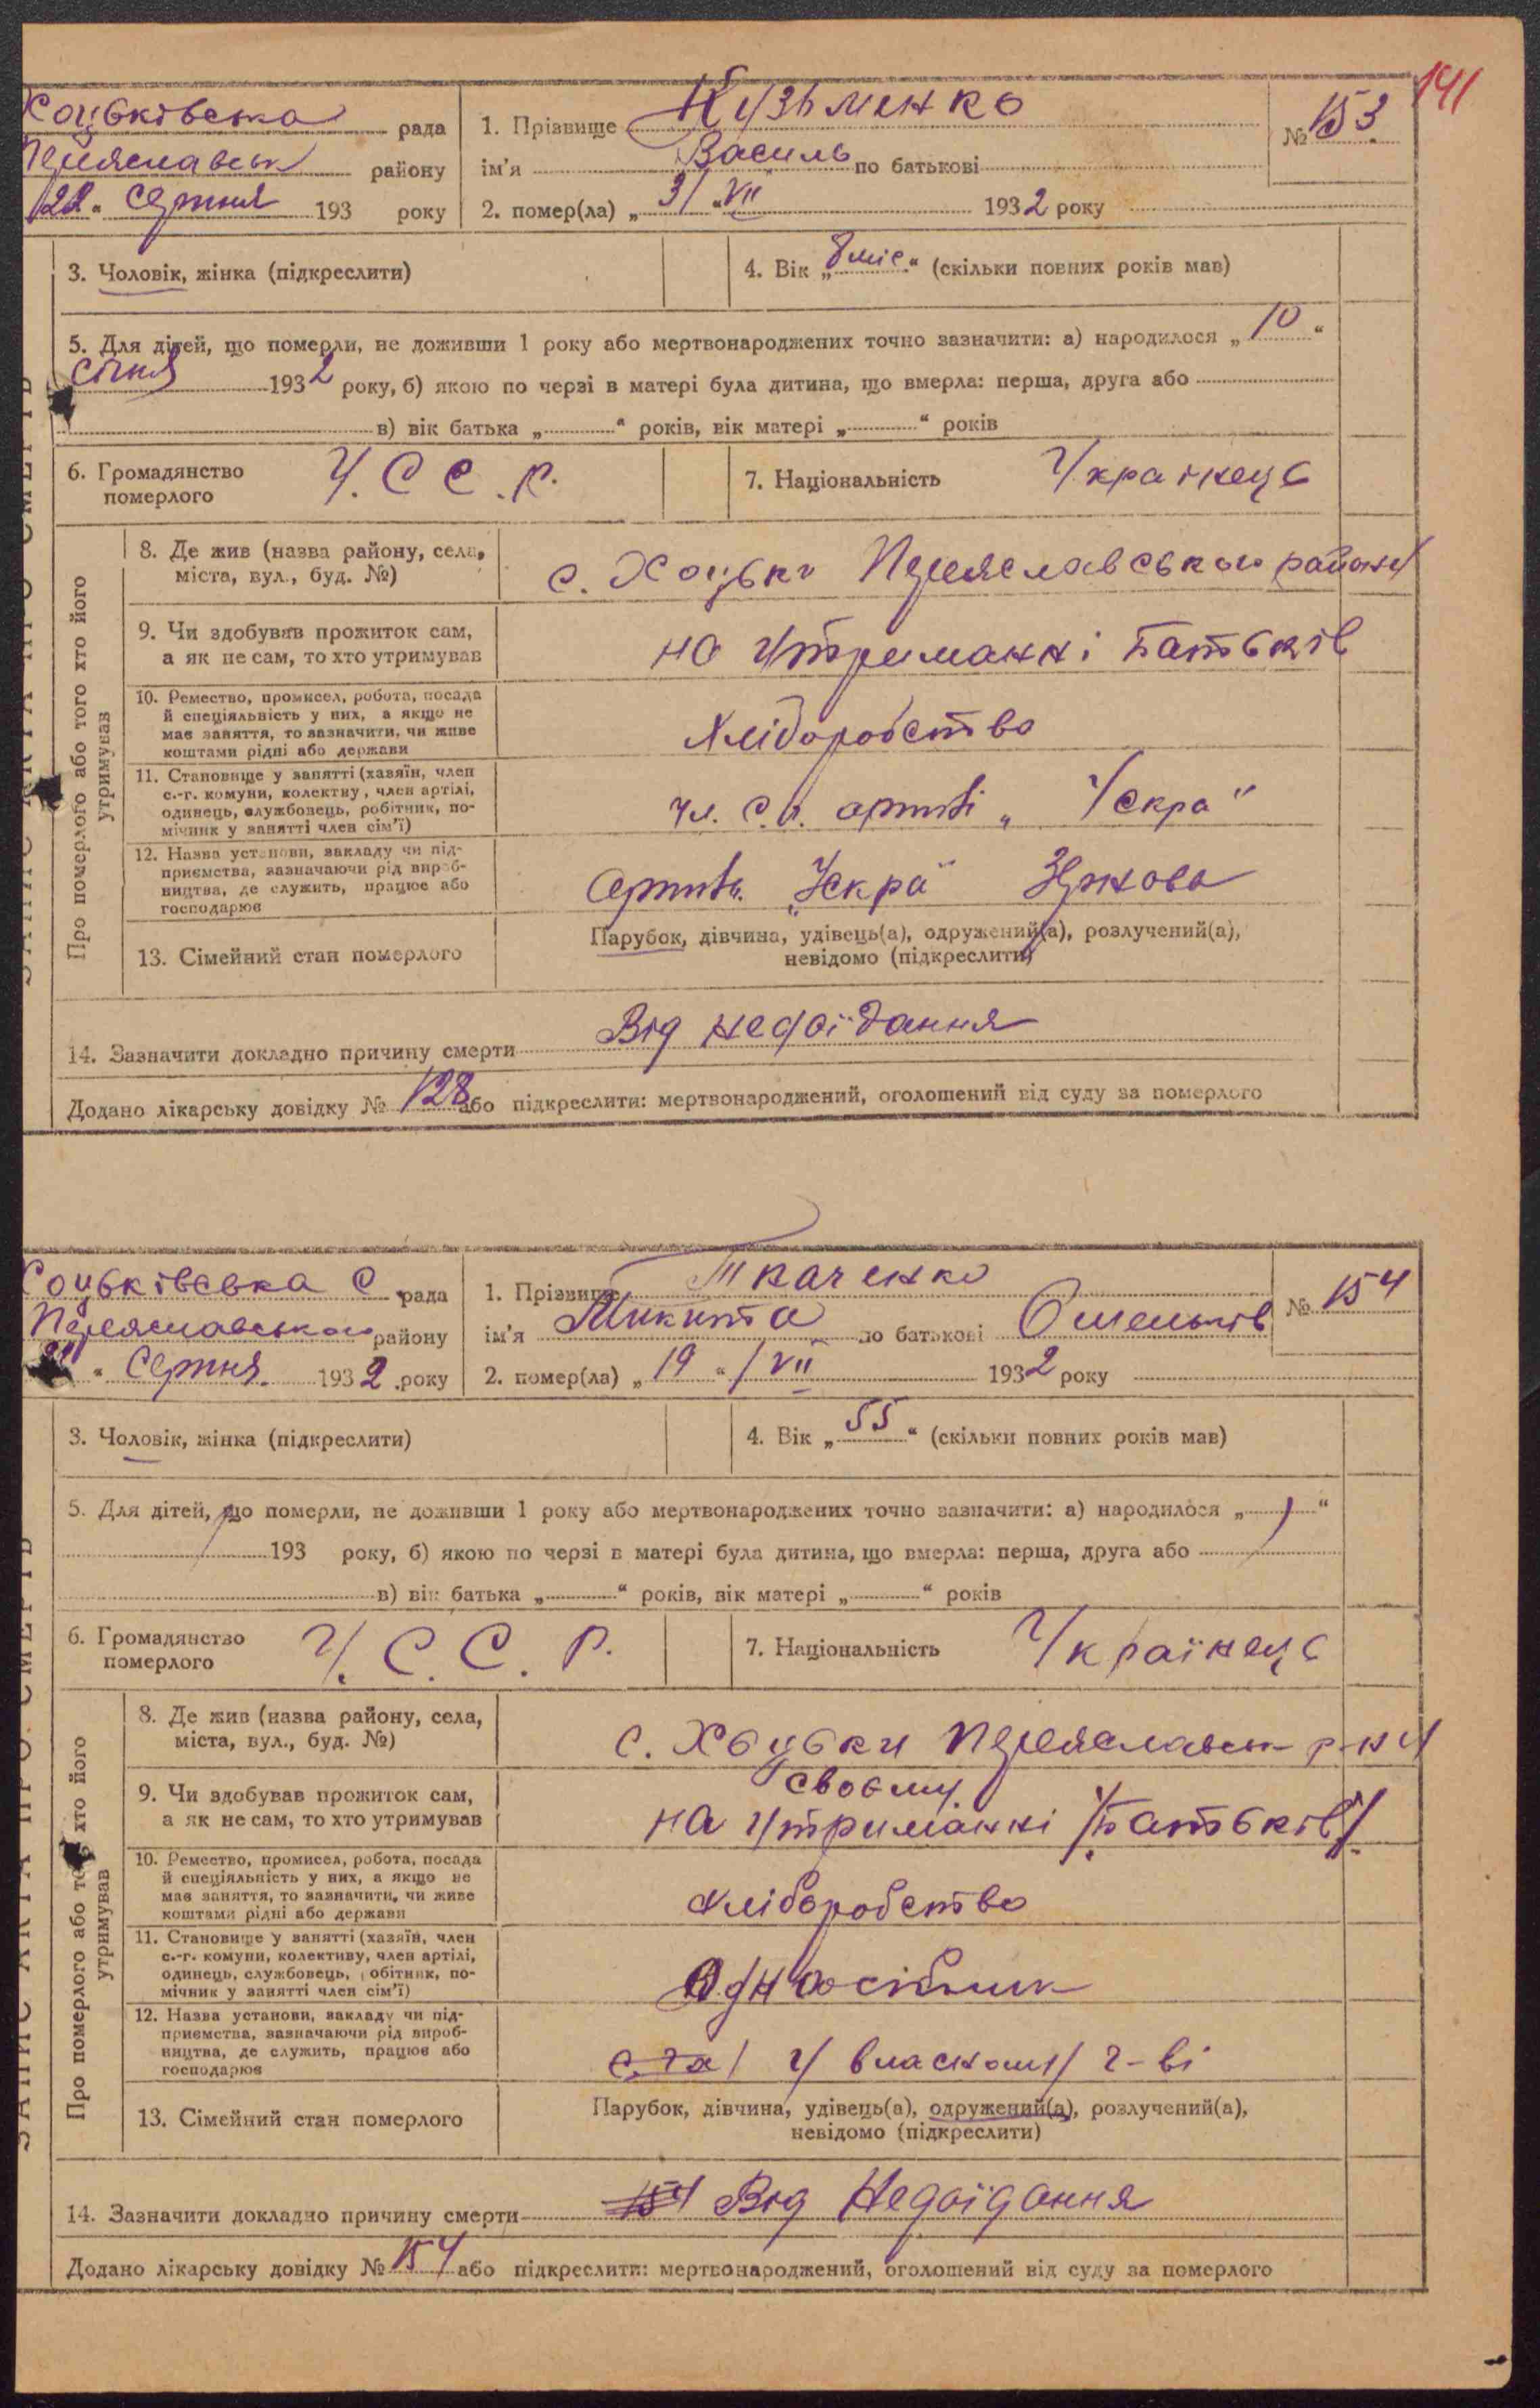 141
Хоцьківська рада
Переяславськ району
"22" серпня 193 року
1. Прізвище Кузьменко
№ 153.
ім'я Василь по батькові
2. помер(ла) „ 31 " VII 1932 року
3. Чоловік, жінка (підкреслити)
4. Вік „ 8 міс. " (скільки повних років мав)
5. Для дітей, що померли, не доживши 1 року або мертвонароджених точно зазначити: а) народилося „ 10 "
січня 1932 року, б) якою по черзі в матері була дитина, що вмерла: перша, друга або
в) вік батька „ " років, вік матері „ " років
6. Громадянство
померлого
У. С С. Р.
7. Національність
Українець
Про померлого або того хто його
утримував
8. Де жив (назва району, села,
міста, вул., буд. №)
с. Хоцьки Переяславського району
9. Чи здобував прожиток сам,
а як не сам, то хто утримував
на утриманні батьків
10. Ремество, промисел, робота, посада
й спеціяльність у них, а якщо не
має заняття, то зазначити, чи живе
коштами рідні або держави
Хліборобство
11. Становище у занятті (хазяїн, член
с.-г. комуни, колективу, член артілі,
одинець, службовець, робітник, по-
мічник у занятті член сім'ї)
чл. с.г. артілі „ Іскра "
12. Назва установи, закладу чи під-
приємства, зазначаючи рід вироб-
ництва, де служить, працює або
господарює
Артіль „Іскра"
13. Сімейний стан померлого
Парубок, дівчина, удівець(а), одружений(а), розлучений(а),
невідомо (підкреслити)
14. Зазначити докладно причину смерти Від недоїдання
Додано лікарську довідку № 128 або підкреслити: мертвонароджений, оголошений від суду за померлого
Хоцьківська С. рада
Переяславського району
" Серпня. 1932 .року
1. Прізвище Ткаченко
№ 154
ім'я Микита по батькові Омельків
2. помер(ла) „ 19 " / VII 1932 року
3. Чоловік, жінка (підкреслити)
4. Вік „ 55 " (скільки повних років мав)
5. Для дітей, що померли, не доживши 1 року або мертвонароджених точно зазначити: а) народилося „ "
193 року, б) якою по черзі в матері була дитина, що вмерла: перша, друга або
в) вік батька „ " років, вік матері „ " років
6. Громадянство
померлого
У. С. С. Р.
7. Національність
Українець
Про померлого або того хто його
утримував
8. Де жив (назва району, села,
міста, вул., буд. №)
с. Хоцьки Переяславськ р-ну
9. Чи здобував прожиток сам,
а як не сам, то хто утримував
своєму
на утриманні /батьків/
10. Ремество, промисел, робота, посада
й спеціяльність у них, а якщо не
має заняття, то зазначити, чи живе
коштами рідні або держави
хліборобство
11. Становище у занятті (хазяїн, член
с.-г. комуни, колективу, член артілі,
одинець, службовець, робітник, по-
мічник у занятті член сім'ї)
Одноосібник
12. Назва установи, закладу чи під-
приємства, зазначаючи рід вироб-
ництва, де служить, працює або
господарює
у власному г-ві
13. Сімейний стан померлого
Парубок, дівчина, удівець(а), одружений(а), розлучений(а),
невідомо (підкреслити)
14. Зазначити докладно причину смерти 154 Від Недоїдання
Додано лікарську довідку № 154 або підкреслити: мертвонароджений, оголошений від суду за померлого